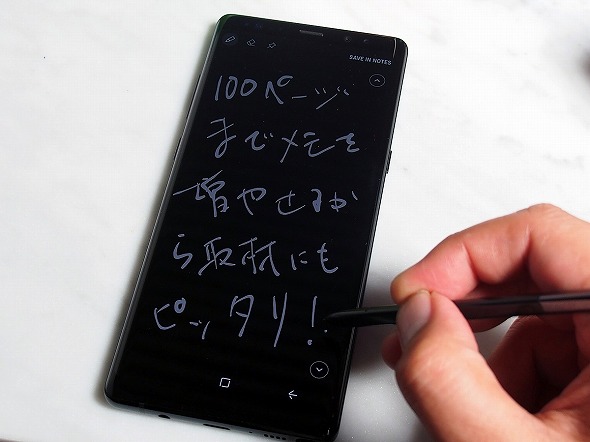 SAVE IN NOTES
100ページ
までメモを
増やせるか
ら取材にも
ピッタリ!